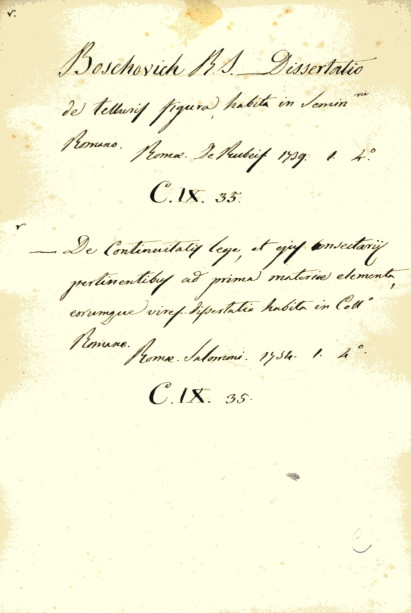 v.
Boschovich R. S. — Dissertatio
de telluris figura, habita in Semin.rio
Romano.
Romæ. De Rubeis 1739. 1. 4.º
C. IX. 35.
v
— De Continuitatis lege, et ejus consectariis
pertinentibus ad prima materiæ elementa,
eorumque vires. dissertatio habita in Coll.º
Romano.
Romæ. Salomoni. 1754. 1. 4.º
C. IX. 35.